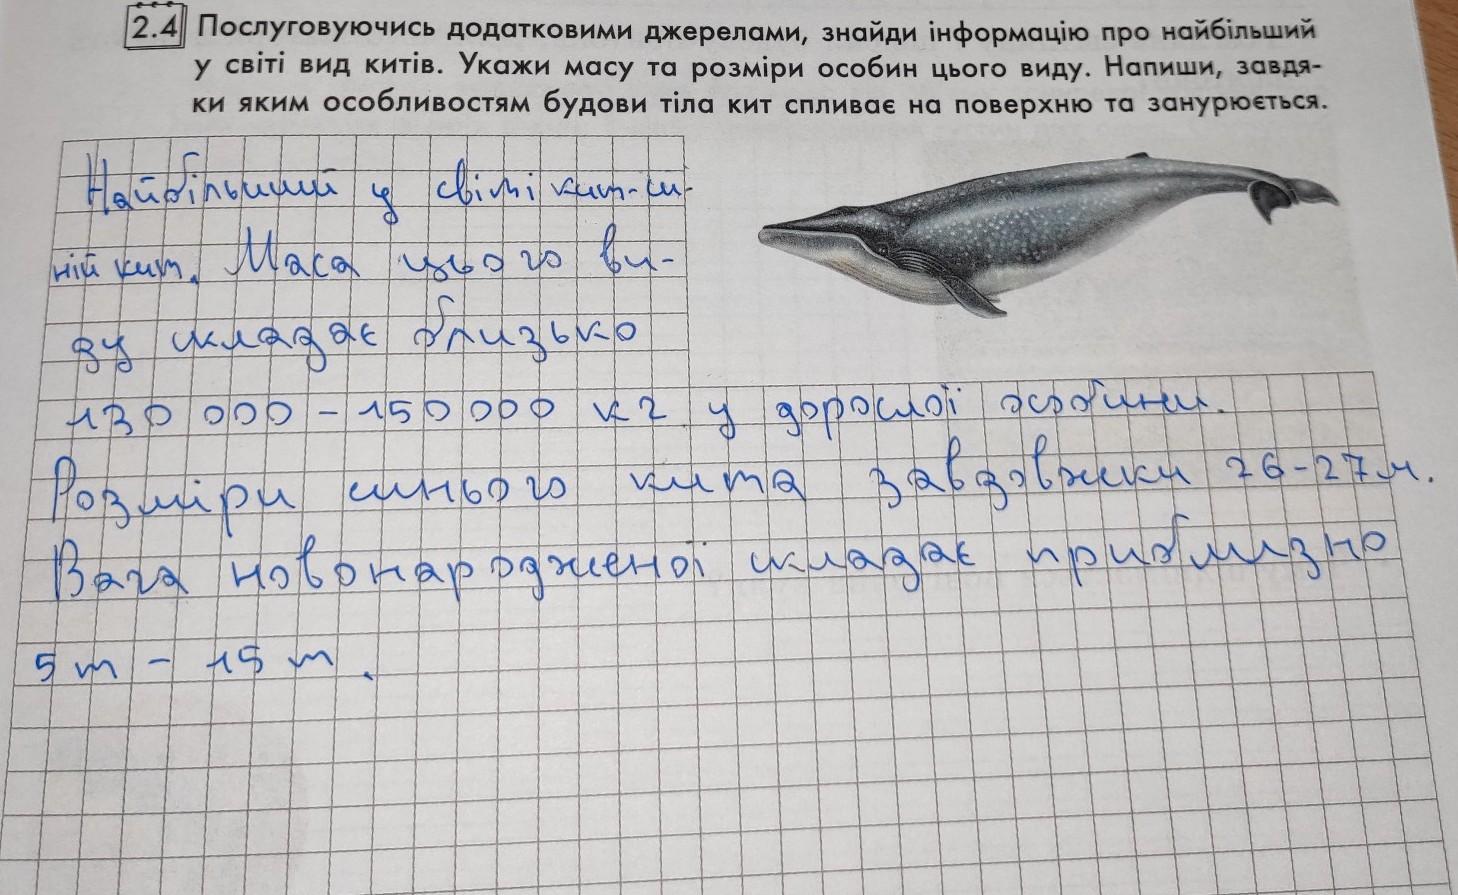 2.4 Послуговуючись додатковими джерелами, знайди інформацію про найбільший
у світі вид китів. Укажи масу та розміри особин цього виду. Напиши, завдя-
ки яким особливостям будови тіла кит спливає на поверхню та занурюється.
Найбільший у світі кит-си-
ній кит. Маса цього ви-
ду складає близько
130 000 - 150 000 кг у дорослої особини.
Розміри синього кита завдовжки 26-27м.
Вага новонародженої складає приблизно
5 т - 15 т.